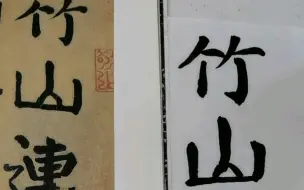 竹
山
連
竹
山